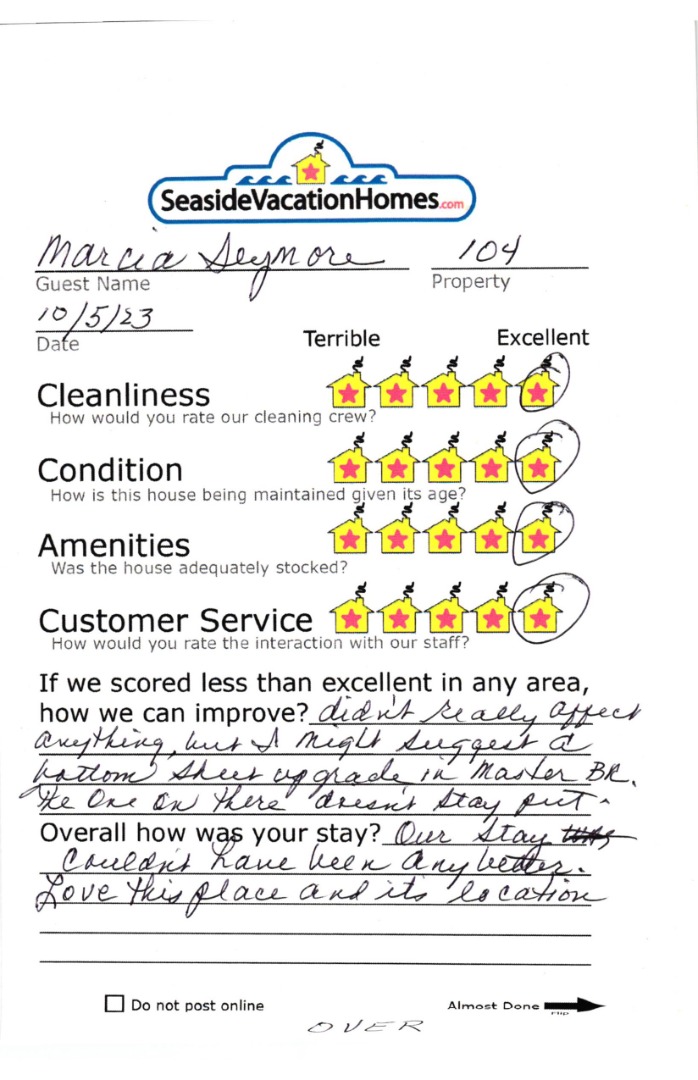 SeasideVacationHomes.com
Marcia Seymore 104
Guest Name Property
10/5/23
Date
Terrible Excellent
Cleanliness
How would you rate our cleaning crew?
Condition
How is this house being maintained given its age?
Amenities
Was the house adequately stocked?
Customer Service
How would you rate the interaction with our staff?
If we scored less than excellent in any area,
how we can improve? didn't really affect
anything, but I might suggest a
bottom sheet upgrade in Master BR.
the One on there doesn't stay put.
Overall how was your stay? Our stay was
couldn't have been any better.
Love this place and its location
Do not post online Almost Done
Flip
OVER